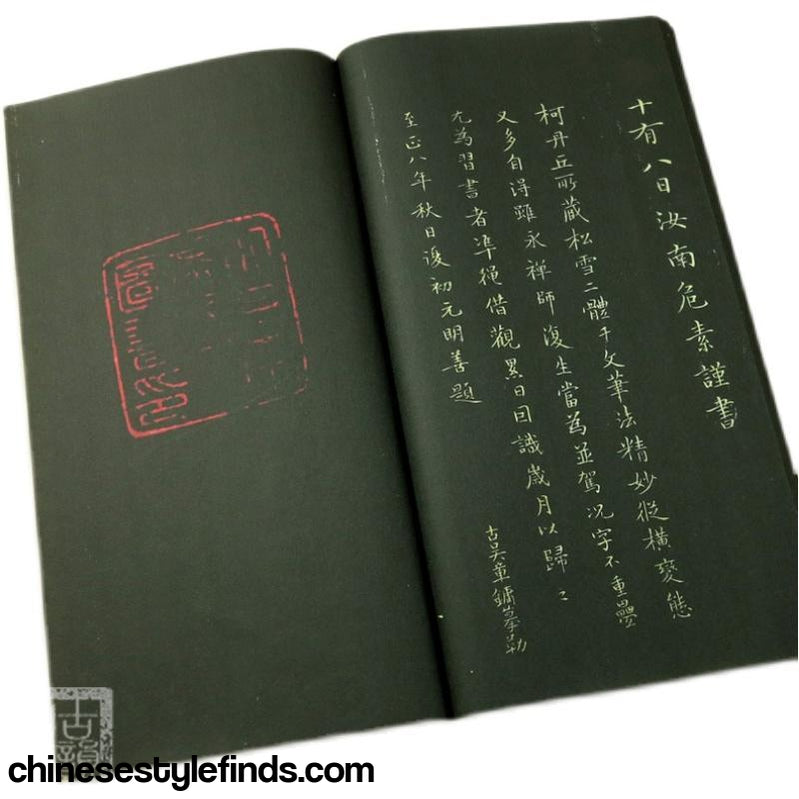 十有八日汝南危素謹書
柯丹丘所藏松雪二體千文筆法精妙從橫變態
又多自得雖永禪師復生當為並駕况字不重疊
尤為習書者準繩借觀累日回識歲月以歸〻
至正八年秋日後初元明善題
古吳章鏞摹勒
古韻
chinesestylefinds.com